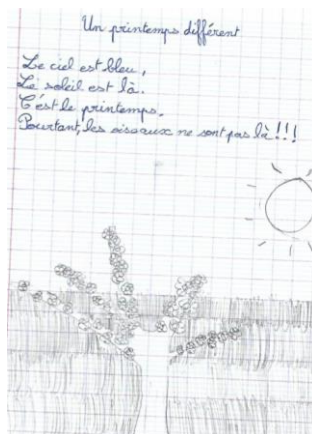 Un printemps différent
Le ciel est bleu,
Le soleil est là.
C'est le printemps.
Pourtant, les oiseaux ne sont pas là !!!